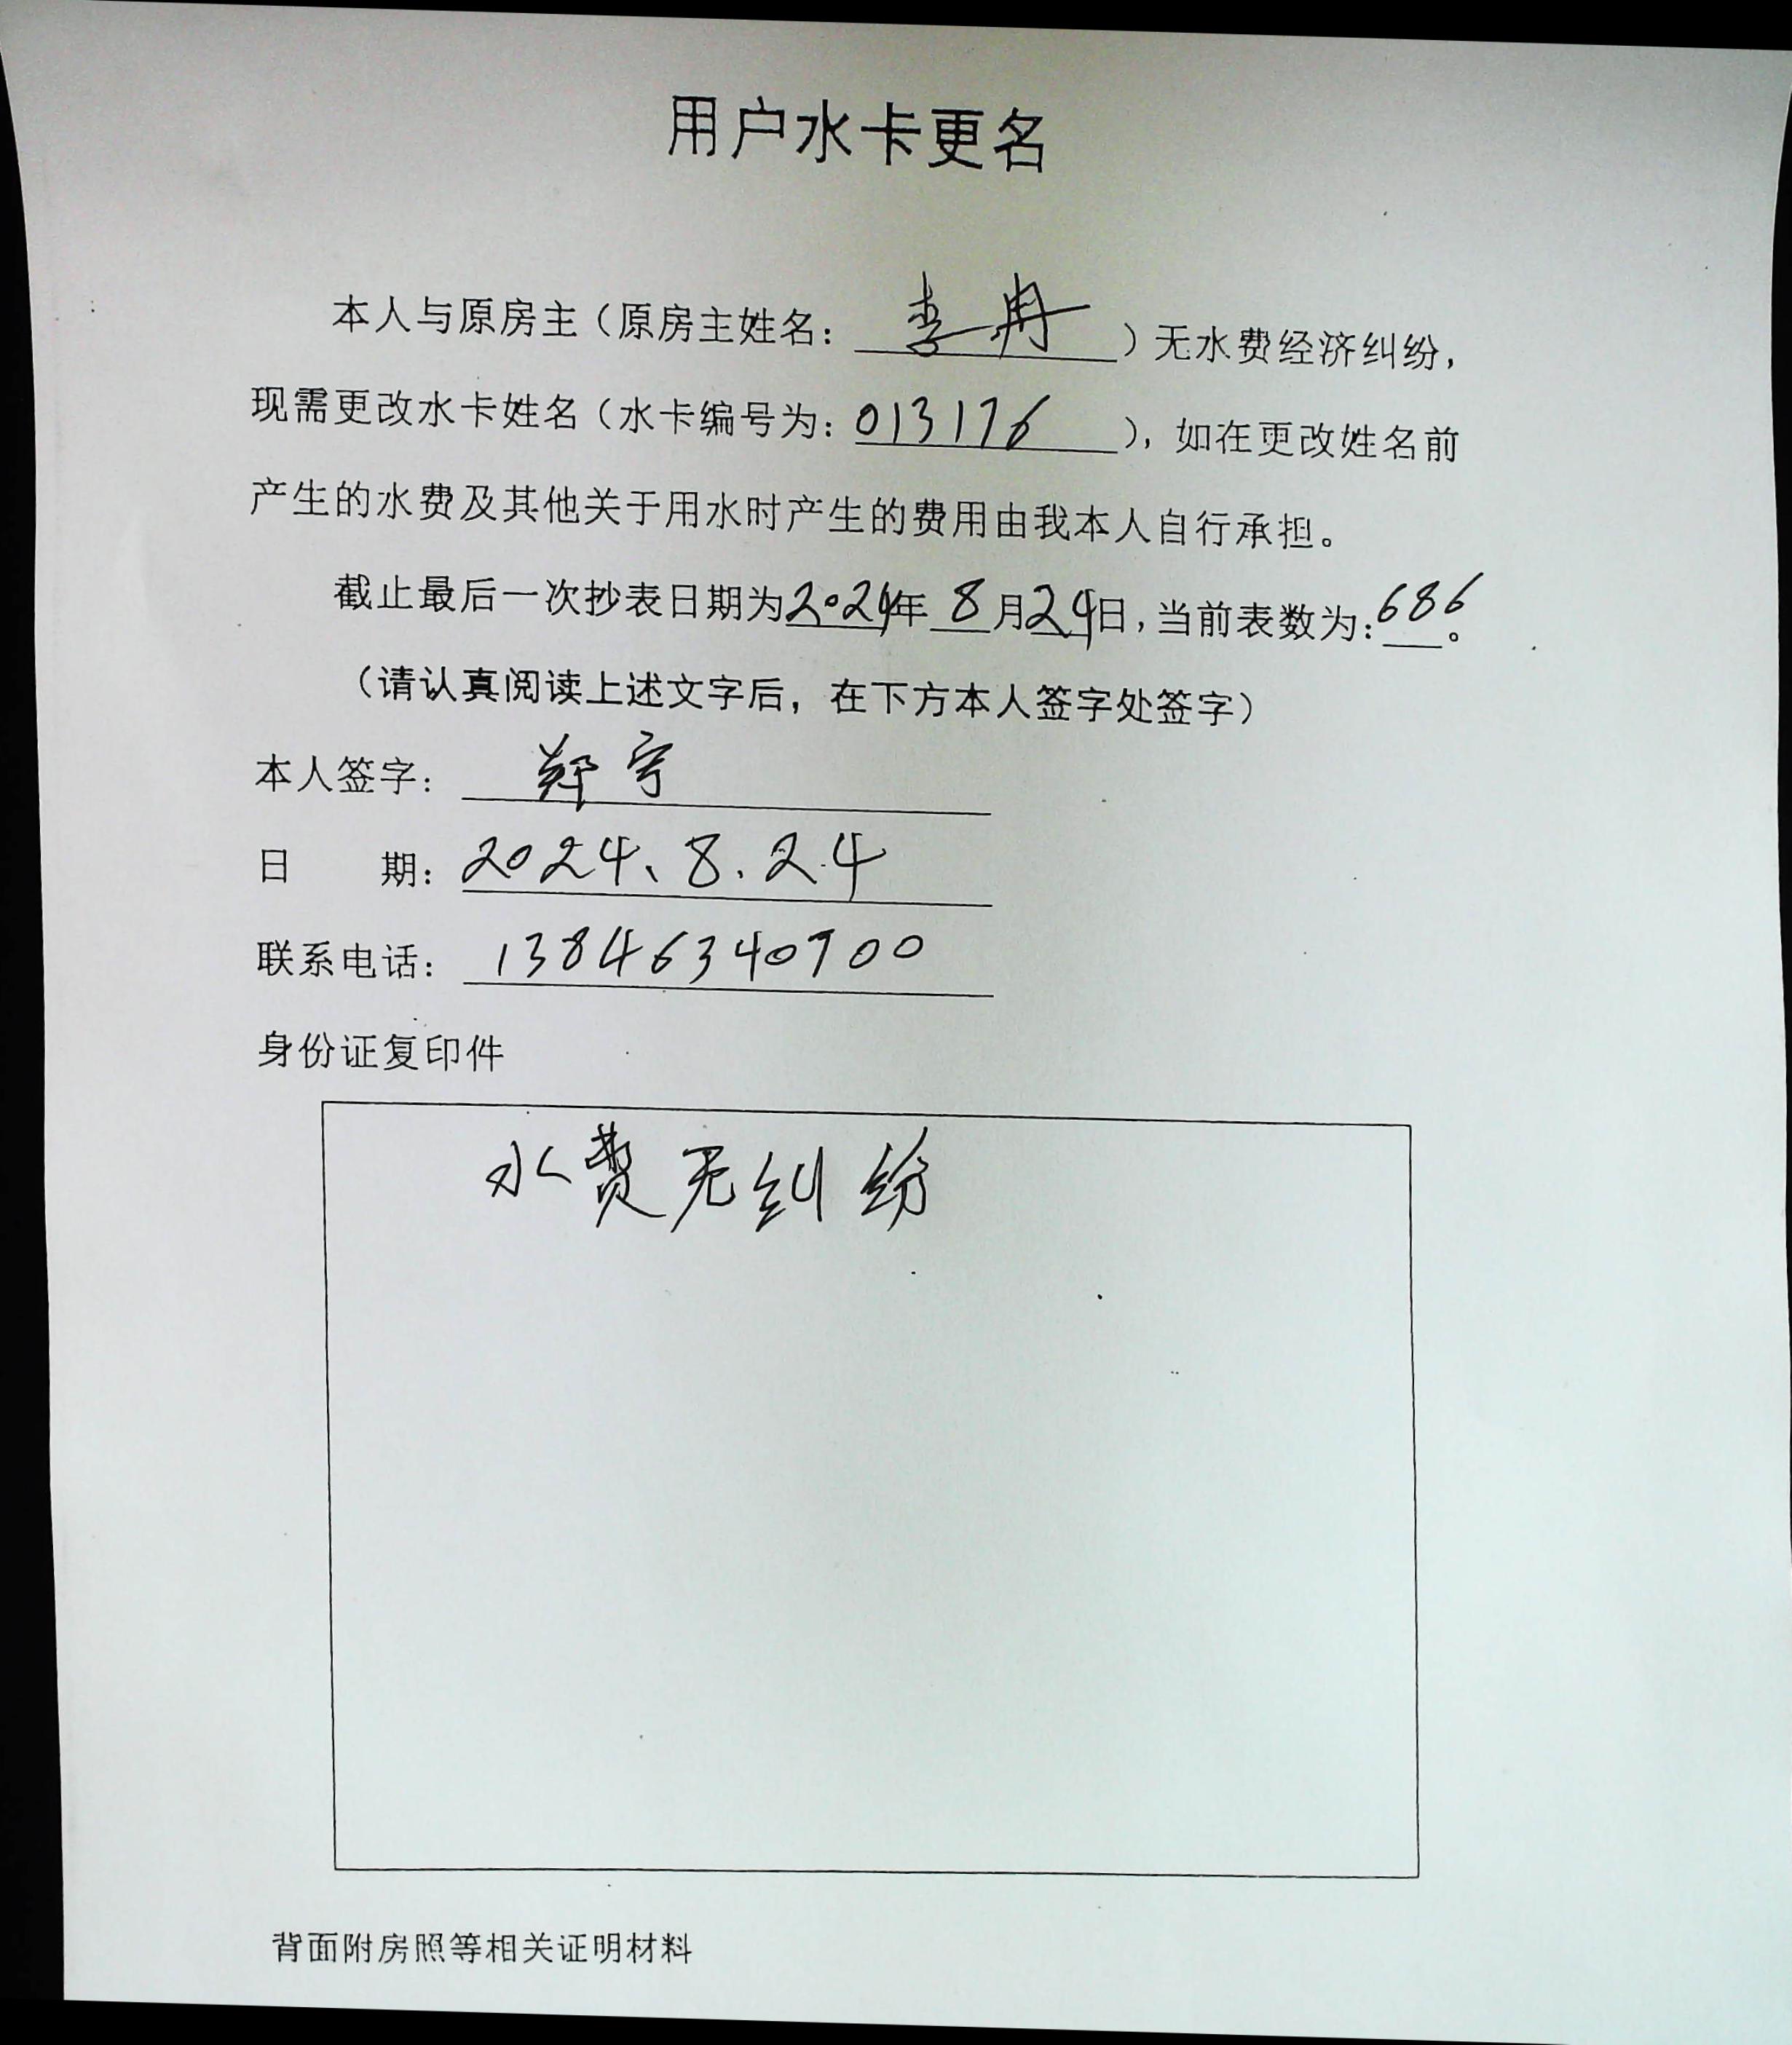 用户水卡更名
本人与原房主（原房主姓名：李冉）无水费经济纠纷，
现需更改水卡姓名（水卡编号为：013176），如在更改姓名前
产生的水费及其他关于用水时产生的费用由我本人自行承担。
截止最后一次抄表日期为2024年8月24日，当前表数为：686。
（请认真阅读上述文字后，在下方本人签字处签字）
本人签字：郑宇
日 期：2024、8.24
联系电话：13846340900
身份证复印件
水费无纠纷
背面附房照等相关证明材料